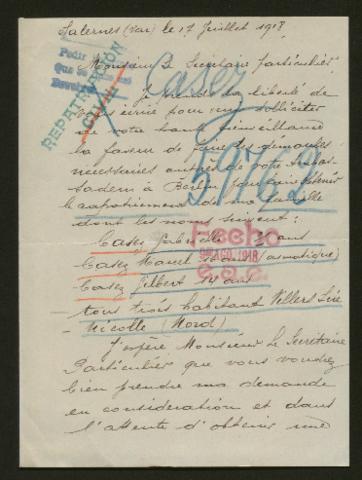 Salernes (Var) le 17 Juillet 1918
Pedir
Que se
REPATRIACION
CIVIL
Monsieur Le Secrétaire Particulier
Casez
5742
Je prends la liberté de
vous écrire pour vous solliciter
de votre haute bienveillance
la faveur de faire les démarches
nécessaires auprès de votre Ambas-
sadeur à Berlin pour faire obtenir
le rapatriement de ma famille
dont les noms suivent:
Casez Gabrielle ans
Casez Marcel ans (asmatique)
Casez Gilbert 14 ans
Fecho
AGO. 1918
tous trois habitant Villers Sire
- Nicolle (Nord)
J'espère Monsieur Le Secrétaire
Particulier que vous voudrez
bien prendre ma demande
en considération et dans
l'attente d'obtenir une